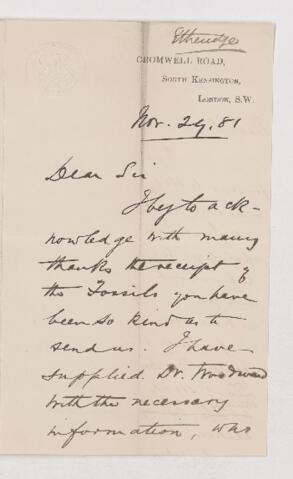 Etheridge
CROMWELL ROAD,
SOUTH KENSINGTON,
LONDON, S.W.
Nov. 29. 81
Dear Sir
I beg to ack-
nowledge with many
thanks the receipt of
the Fossils you have
been so kind as to
send us. I have
supplied Dr. Woodward
with the necessary
information, who